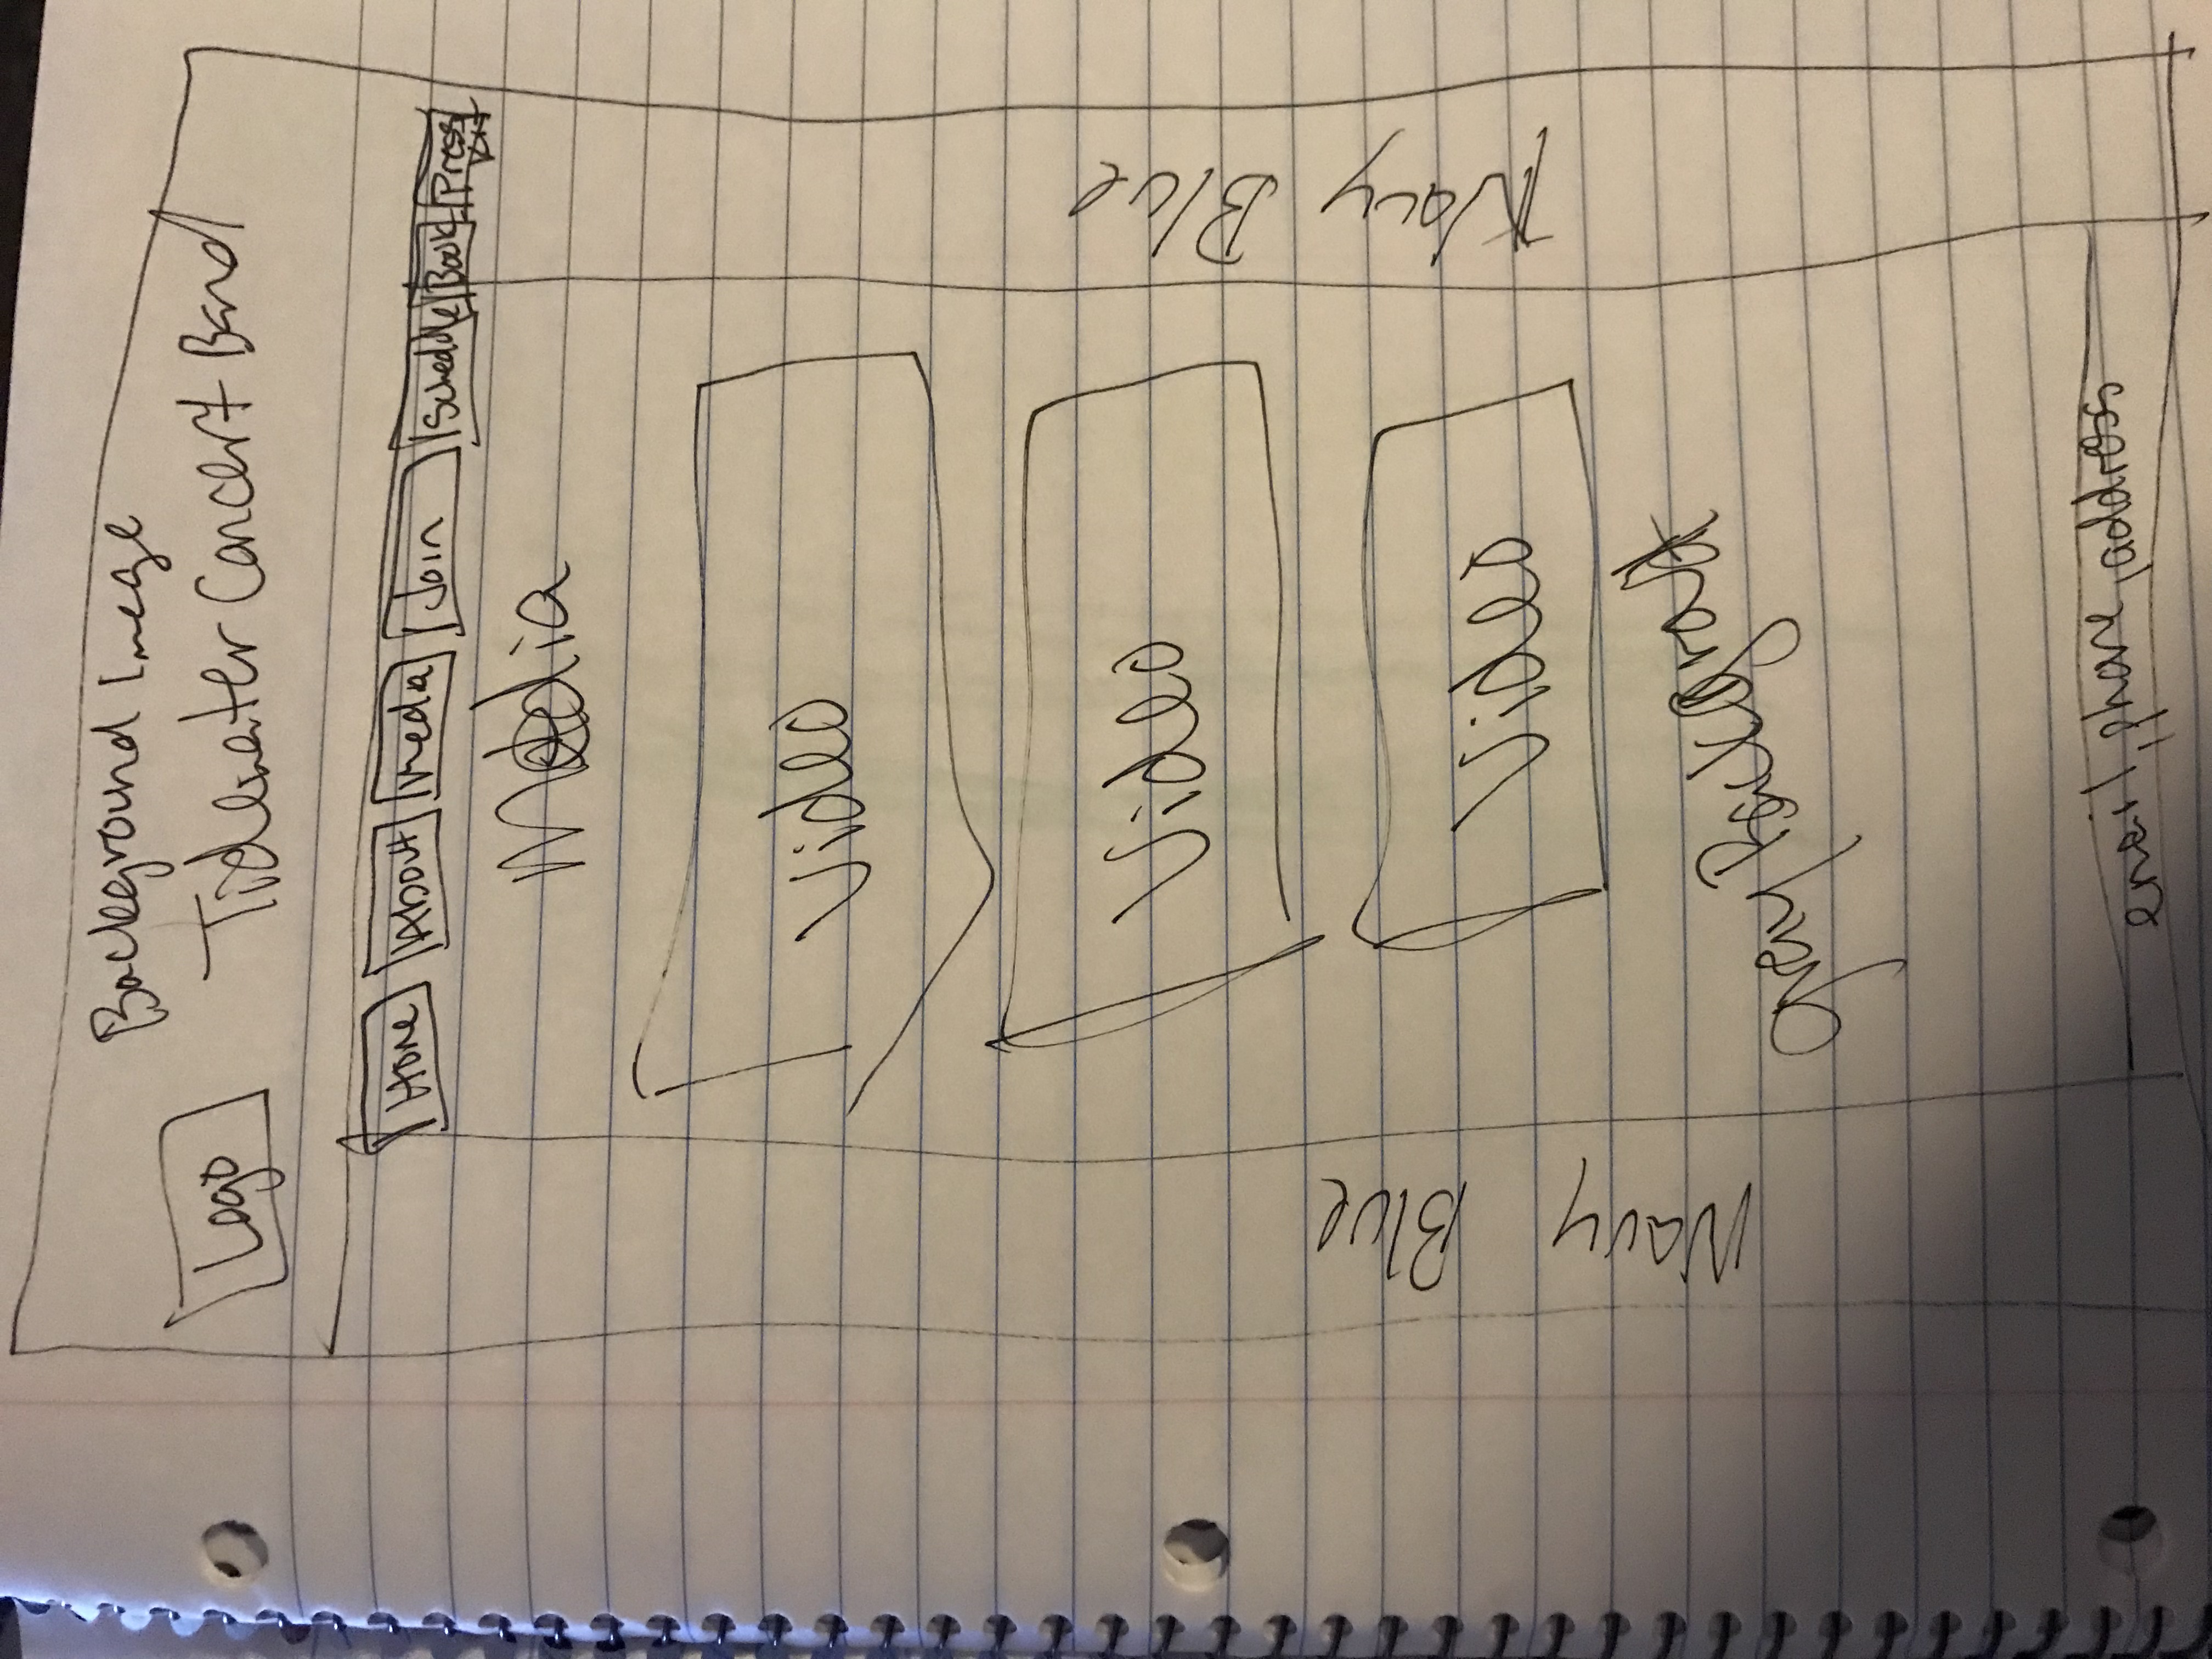 Background Image
Logo
Tidewater Concert Band
Home About Media Join Schedule Book Press Kit
Media
Video
Video
Video
Navy Blue
Navy Blue
gray
email, phone, address